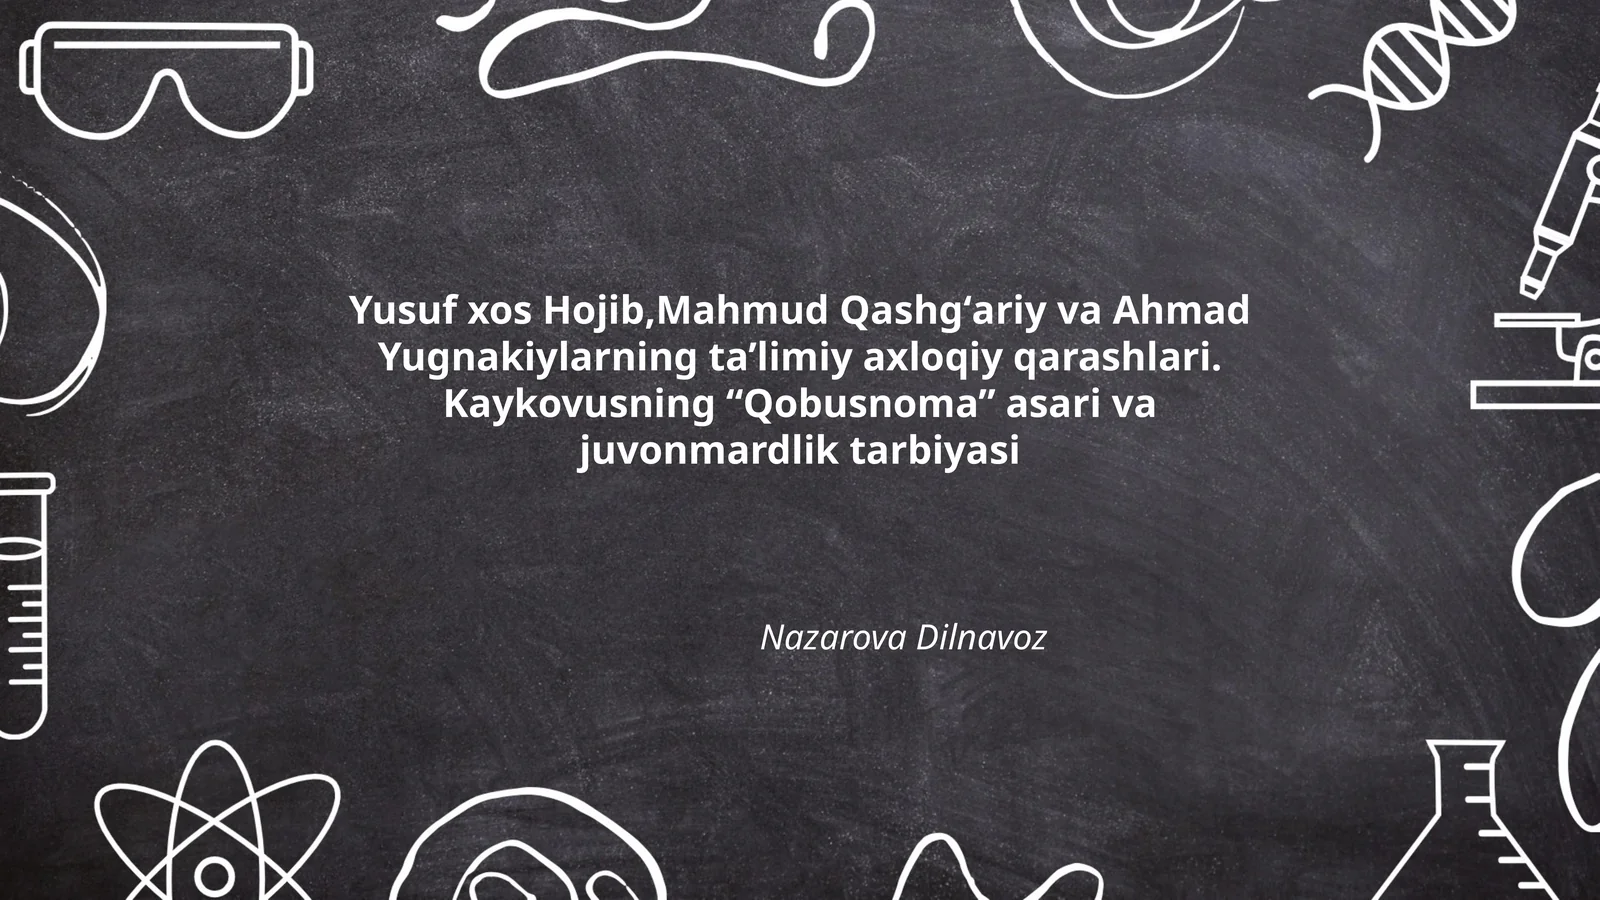 Yusuf xos Hojib,Mahmud Qashg‘ariy va Ahmad
Yugnakiylarning ta’limiy axloqiy qarashlari.
Kaykovusning “Qobusnoma” asari va
juvonmardlik tarbiyasi
Nazarova Dilnavoz